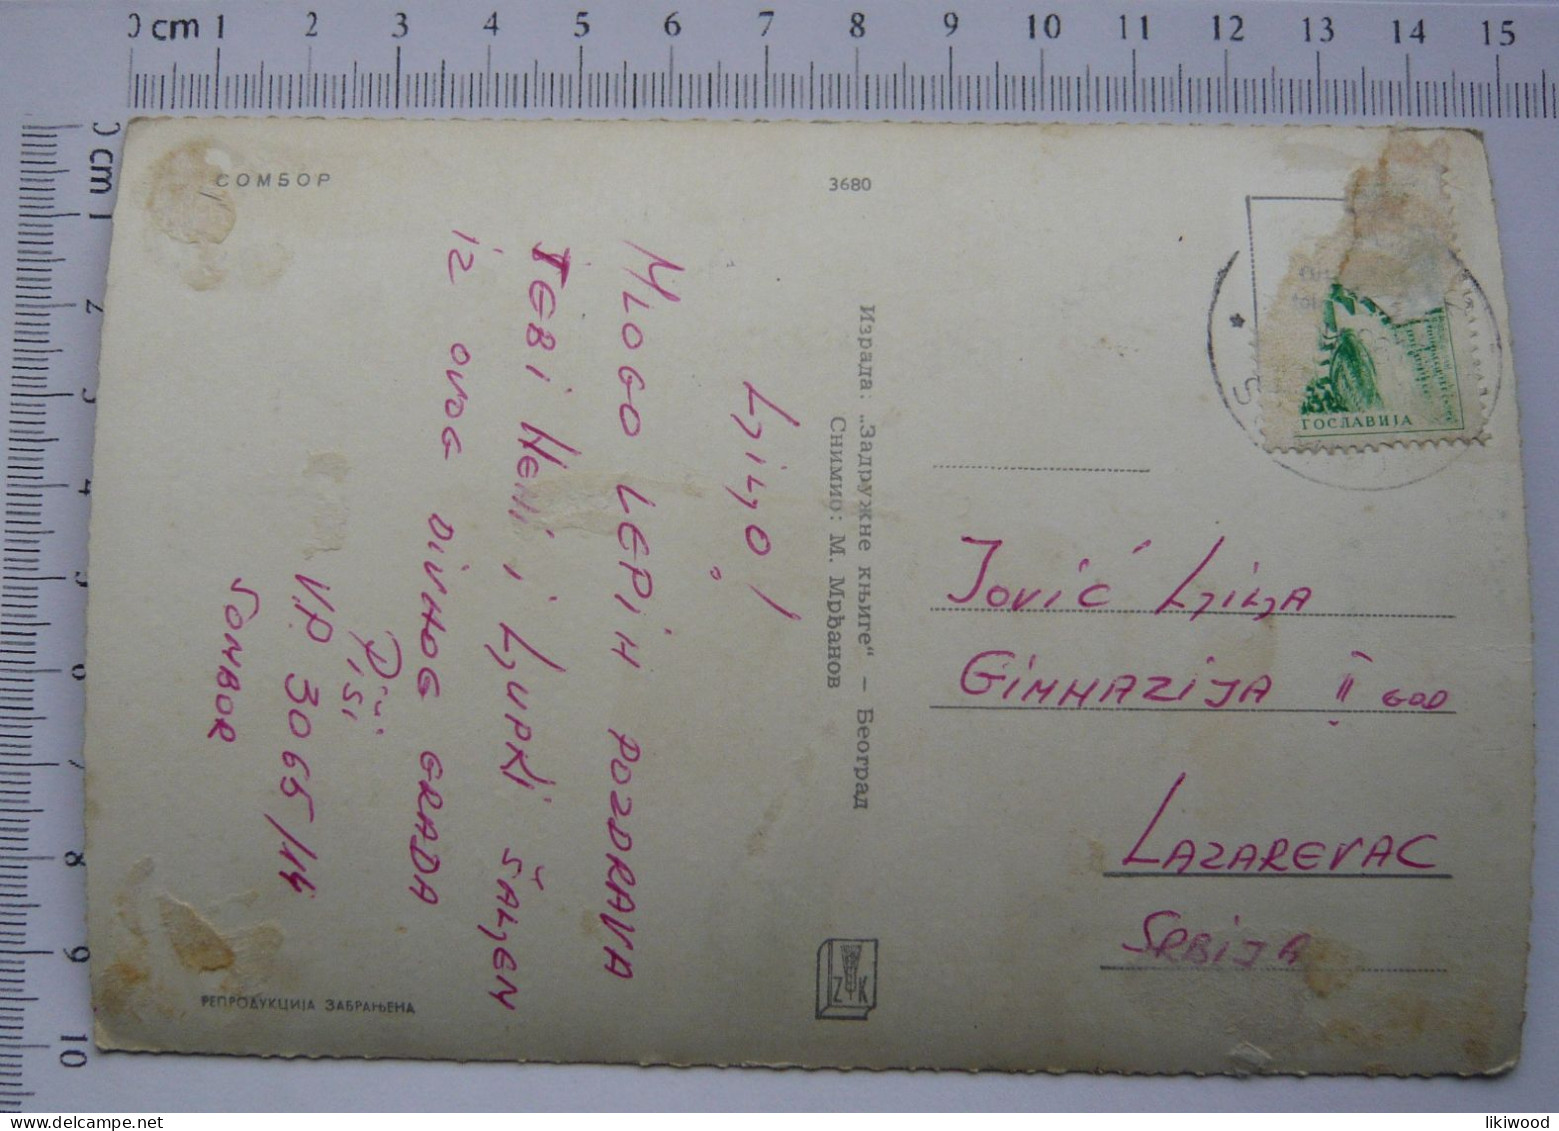 0 cm 1 2 3 4 5 6 7 8 9 10 11 12 13 14 15
0 cm 1 2 3 4 5 6 7 8 9 10
СОМБОР
3680
Ljiljo!
MLOGO LEPIH POZDRAVA
TEBI NENI, I LJUPKI ŠALJEM
IZ OVOG DIVNOG GRADA
PIŠI
VP 3065/14
SOMBOR
РЕПРОДУКЦИЈА ЗАБРАЊЕНА
Израда: „Задружне књиге“ – Београд
Снимио: М. Мрђанов
Z K
ГОСЛАВИЈА
JOVIĆ LJILJA
GIMNAZIJA II GOD
LAZAREVAC
SRBIJA
likiwood